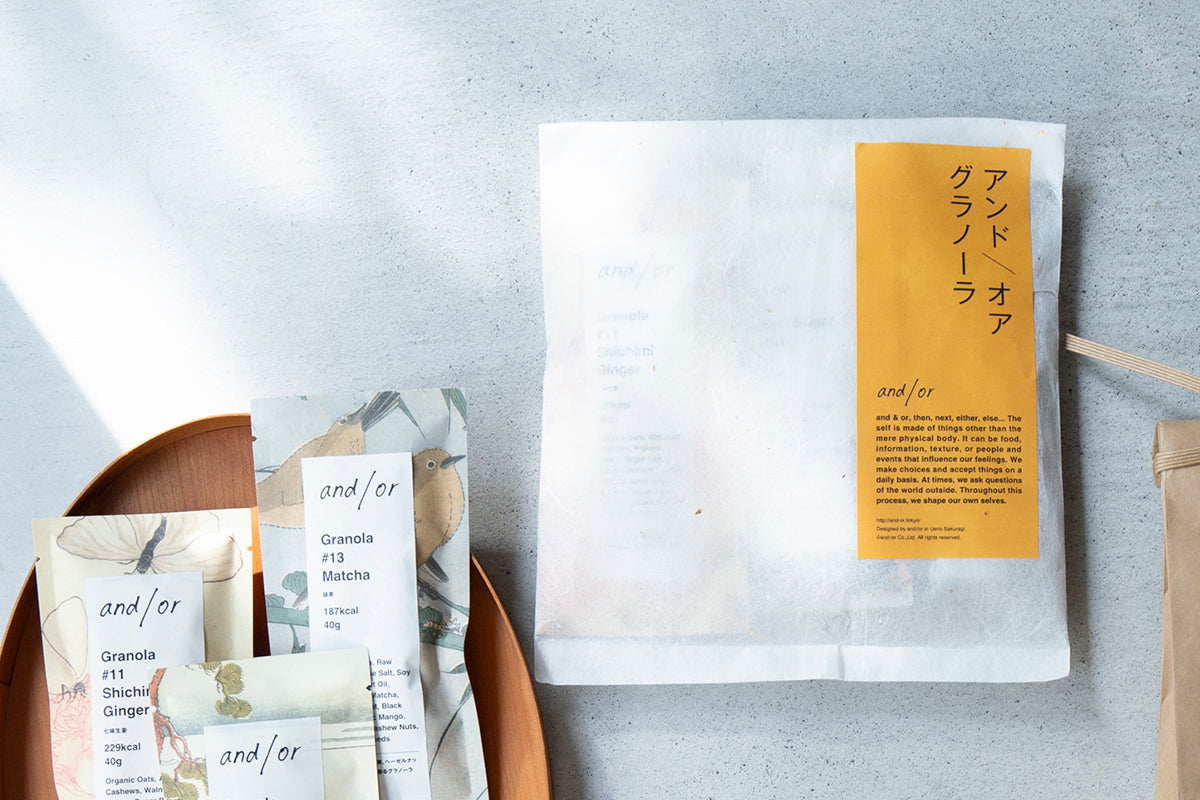 アンド／オア
グラノーラ
and/or
and & or, then, next, either, else... The
self is made of things other than the
mere physical body. It can be food,
information, texture, or people and
events that influence our feelings. We
make choices and accept things on a
daily basis. At times, we ask questions
of the world outside. Throughout this
process, we shape our own selves.
http://and-or.tokyo/
Designed by and/or in Ueno Sakuragi.
©and/or Co.,Ltd. All rights reserved.
and/or
Granola
#11
Shichimi
Ginger
and/or
Granola
#13
Matcha
抹茶
187kcal
40g
Raw
Salt, Soy
Oil,
Matcha,
Black
Mango,
Nuts,
ヘーゼルナッ
グラノーラ
and/or
Granola
#11
Ginger
七味生姜
229kcal
40g
Organic Oats,
Cashews,
and/or